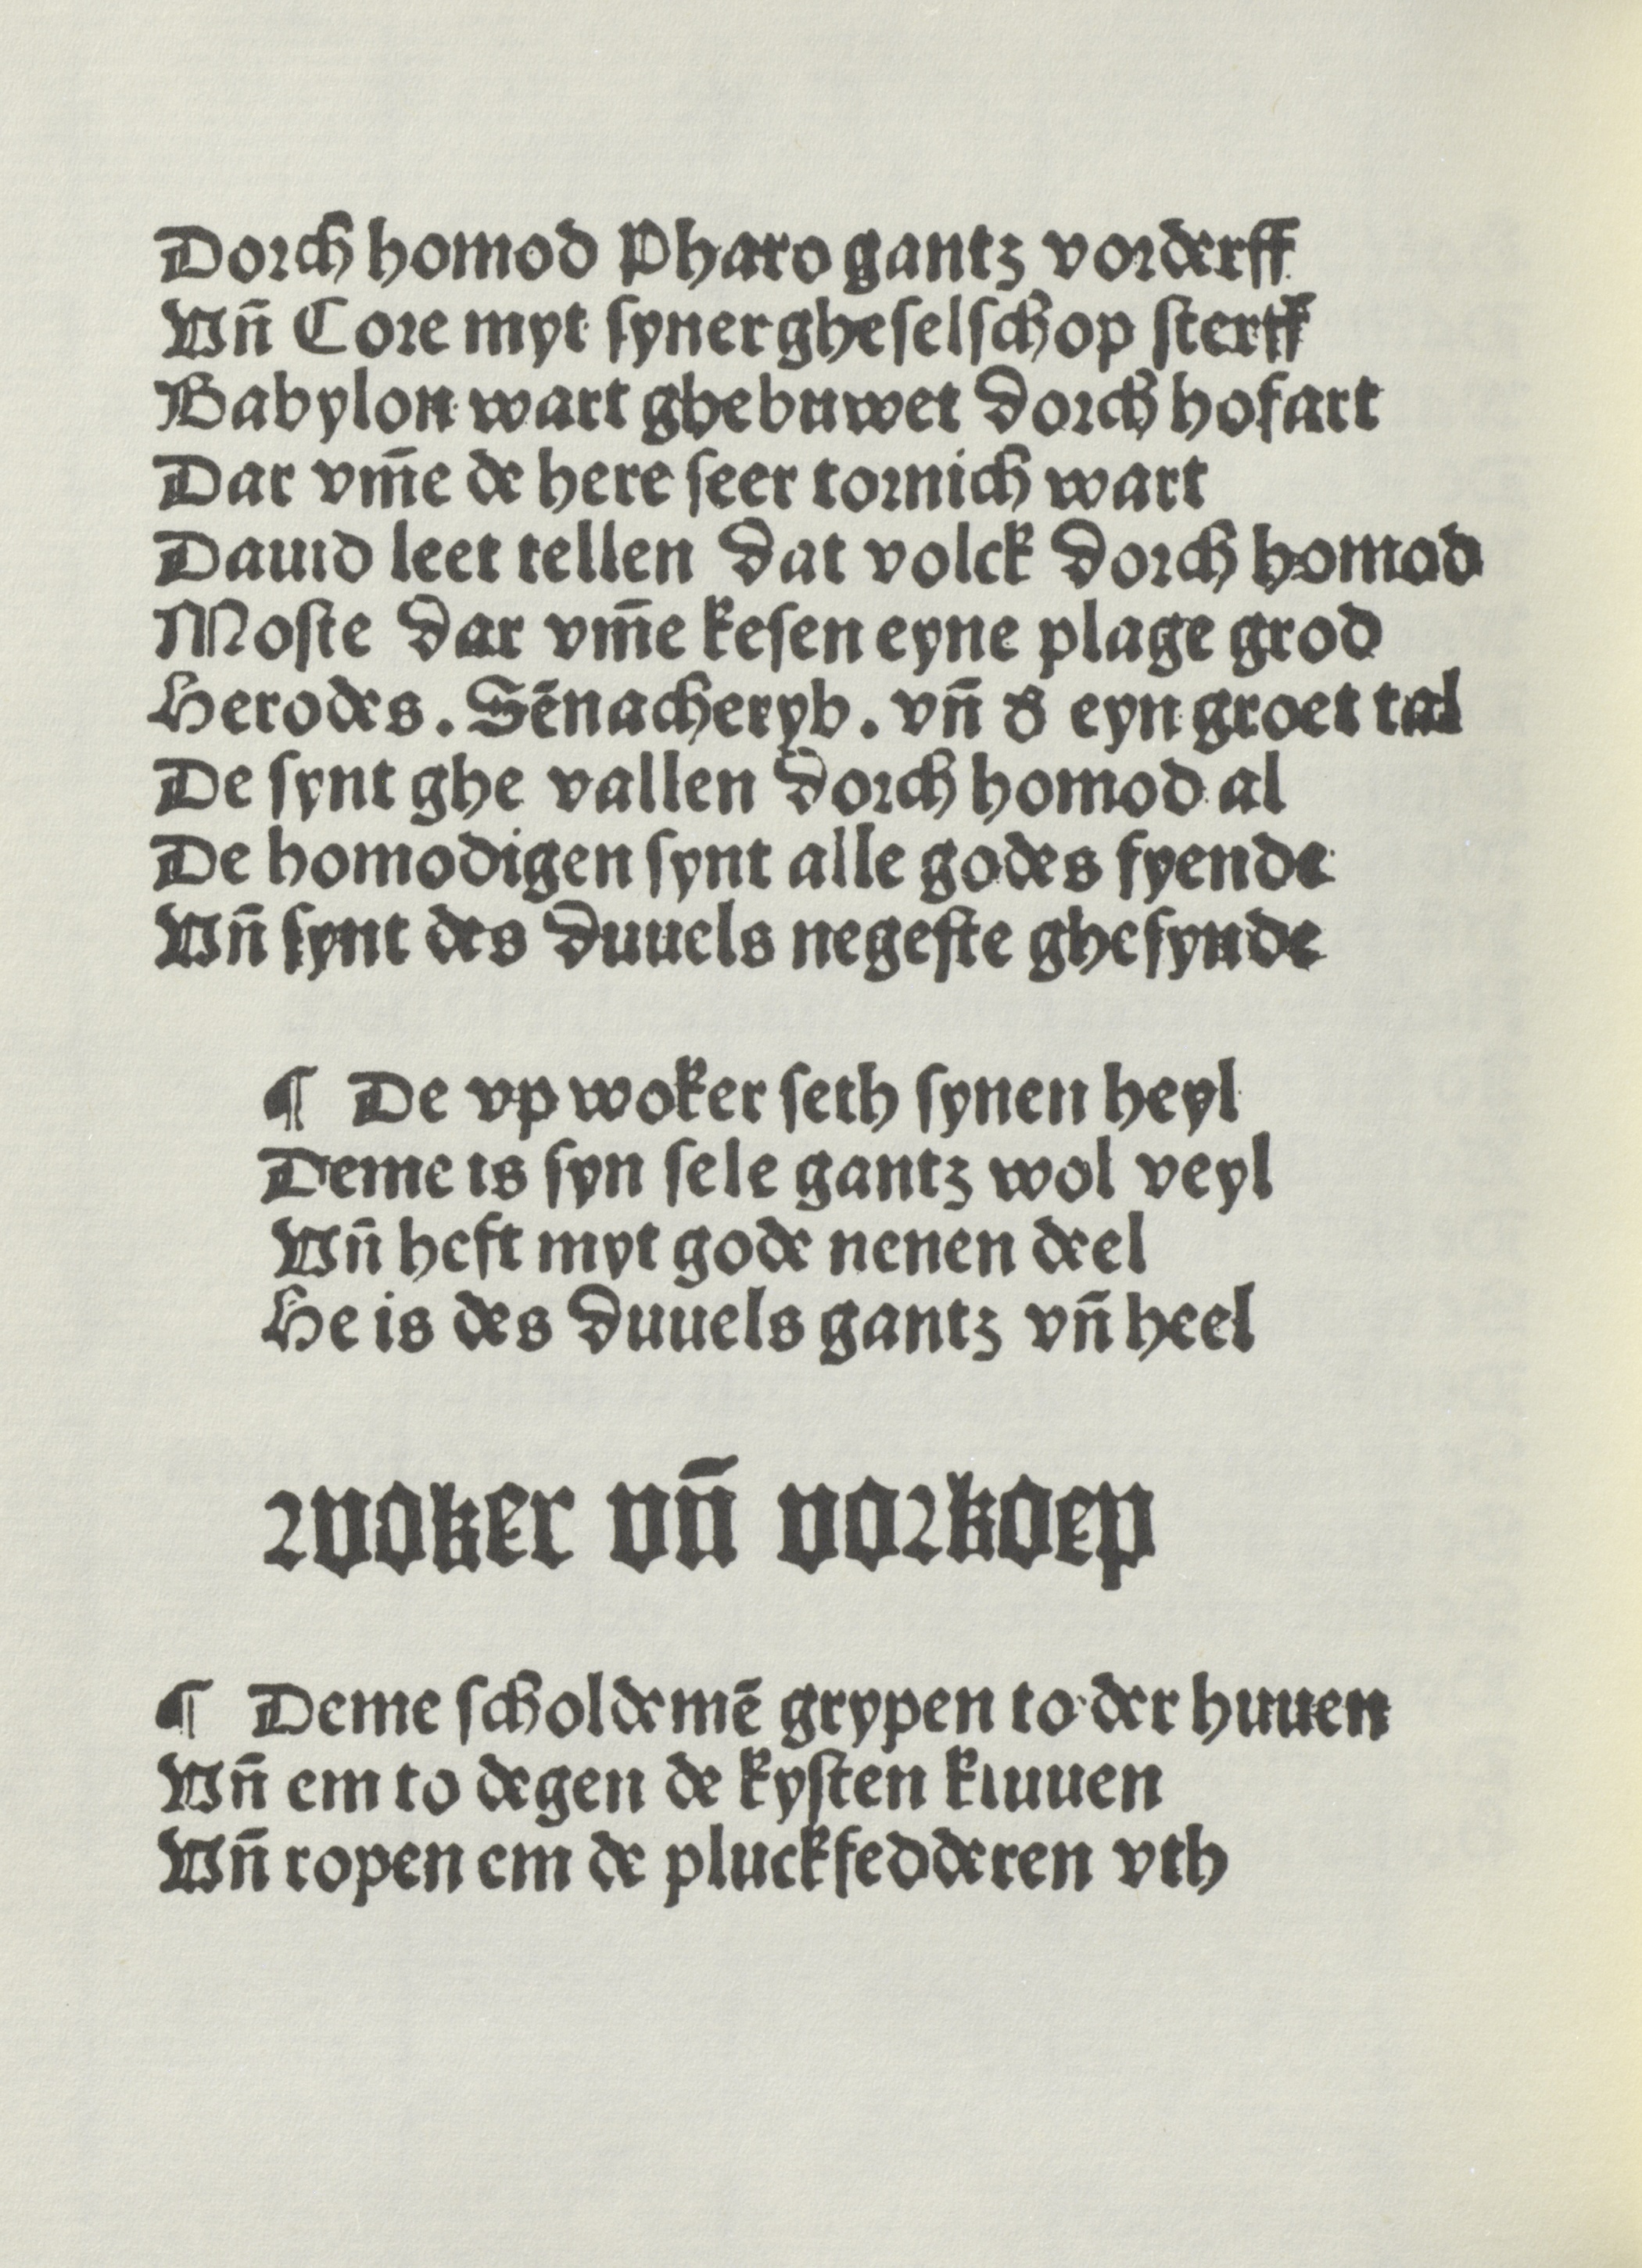 Dorch homod Pharo gantz vorderff
Vñ Core myt ſyner gheſelſchop ſterff
Babylon wart ghebuwet dorch hofart
Dar vm̄e de here ſeer tornich wart
Dauıd leet tellen dat volck dorch homod
Moſte dar vm̄e keſen eyne plage grod
Herodes. Sēnacheryb. vñ d' eyn groet tal
De ſynt ghe vallen dorch homod al
De homodigen ſynt alle godes fyende
Vñ ſynt des duuels negeſte gheſynde
¶ De vp woker ſeth ſynen heyl
Deme is ſyn ſele gantz wol veyl
Vñ heft myt gode nenen deel
He is des duuels gantz vñ heel
woker vñ vorkoep
¶ Deme ſcholde mē grypen to der huuen
Vñ em to degen de kyſten kluuen
Vñ ropen em de pluckfedderen vth